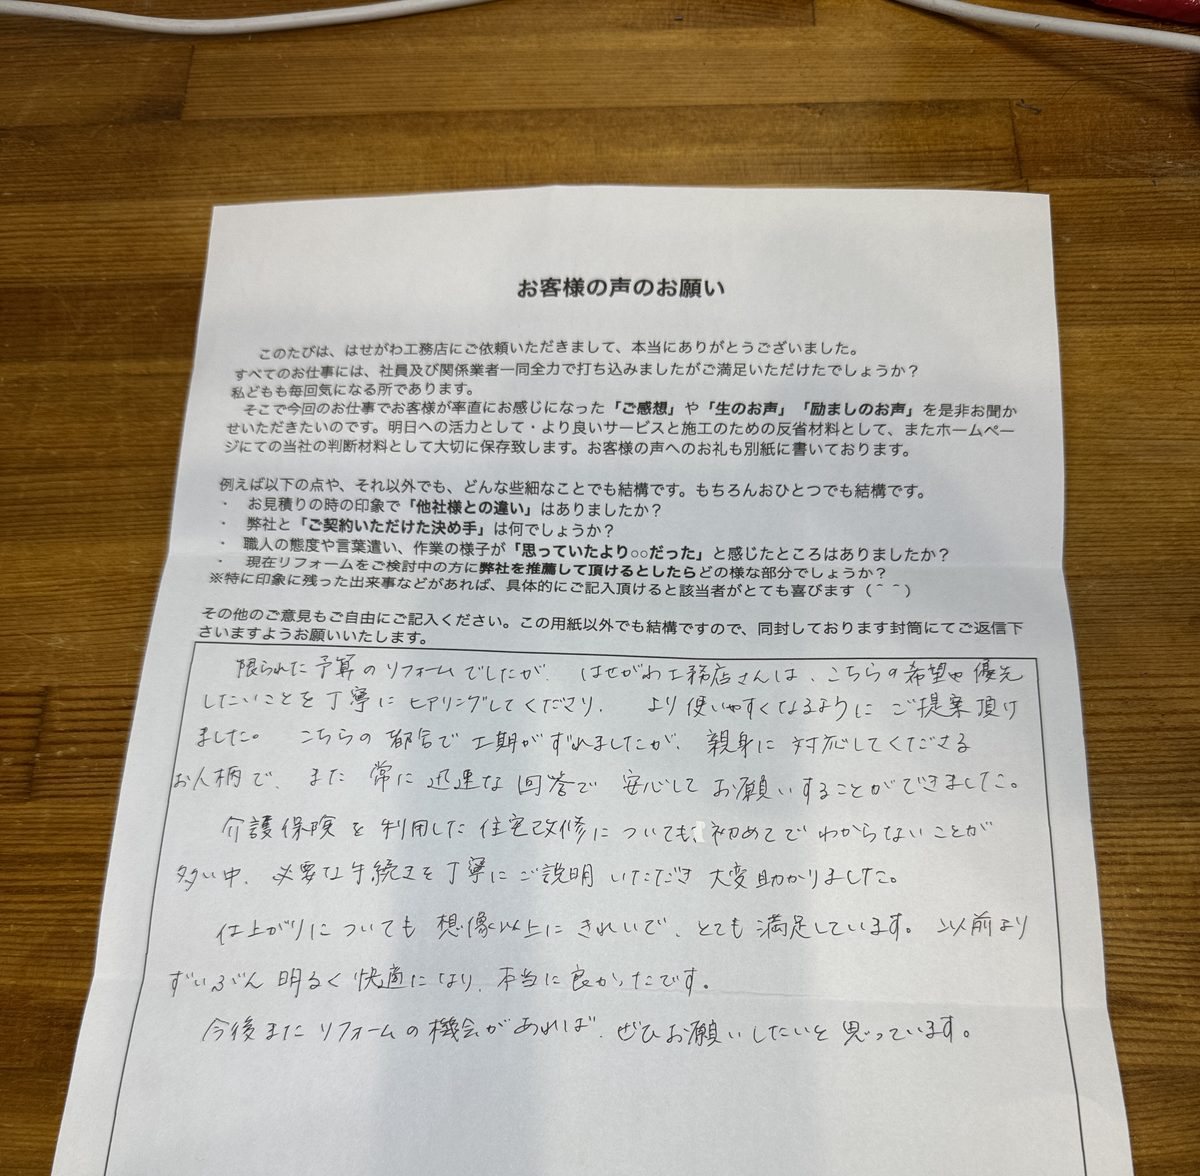 お客様の声のお願い
このたびは、はせがわ工務店にご依頼いただきまして、本当にありがとうございました。
すべてのお仕事には、社員及び関係業者一同全力で打ち込みましたがご満足いただけたでしょうか？
私どもも毎回気になる所であります。
そこで今回のお仕事でお客様が率直にお感じになった「ご感想」や「生のお声」「励ましのお声」を是非お聞か
せいただきたいのです。明日への活力として・より良いサービスと施工のための反省材料として、またホームペー
ジにての当社の判断材料として大切に保存致します。お客様の声へのお礼も別紙に書いております。
例えば以下の点や、それ以外でも、どんな些細なことでも結構です。もちろんおひとつでも結構です。
・ お見積りの時の印象で「他社様との違い」はありましたか？
・ 弊社と「ご契約いただけた決め手」は何でしょうか？
・ 職人の態度や言葉遣い、作業の様子が「思っていたより○○だった」と感じたところはありましたか？
・ 現在リフォームをご検討中の方に弊社を推薦して頂けるとしたらどの様な部分でしょうか？
※特に印象に残った出来事などがあれば、具体的にご記入頂けると該当者がとても喜びます（＾＾）
その他のご意見もご自由にご記入ください。この用紙以外でも結構ですので、同封しております封筒にてご返信下
さいますようお願いいたします。
限られた予算のリフォームでしたが、はせがわ工務店さんは、こちらの希望や優先
したいことを丁寧にヒアリングしてくださり、より使いやすくなるようにご提案頂け
ました。こちらの都合で工期がずれましたが、親身に対応してくださる
お人柄で、また常に迅速な回答で安心してお願いすることができました。
介護保険を利用した住宅改修についても、初めてでわからないことが
多い中、必要な手続きを丁寧にご説明いただき大変助かりました。
仕上がりについても想像以上にきれいで、とても満足しています。以前より
ずいぶん明るく快適になり、本当に良かったです。
今後またリフォームの機会があれば、ぜひお願いしたいと思っています。